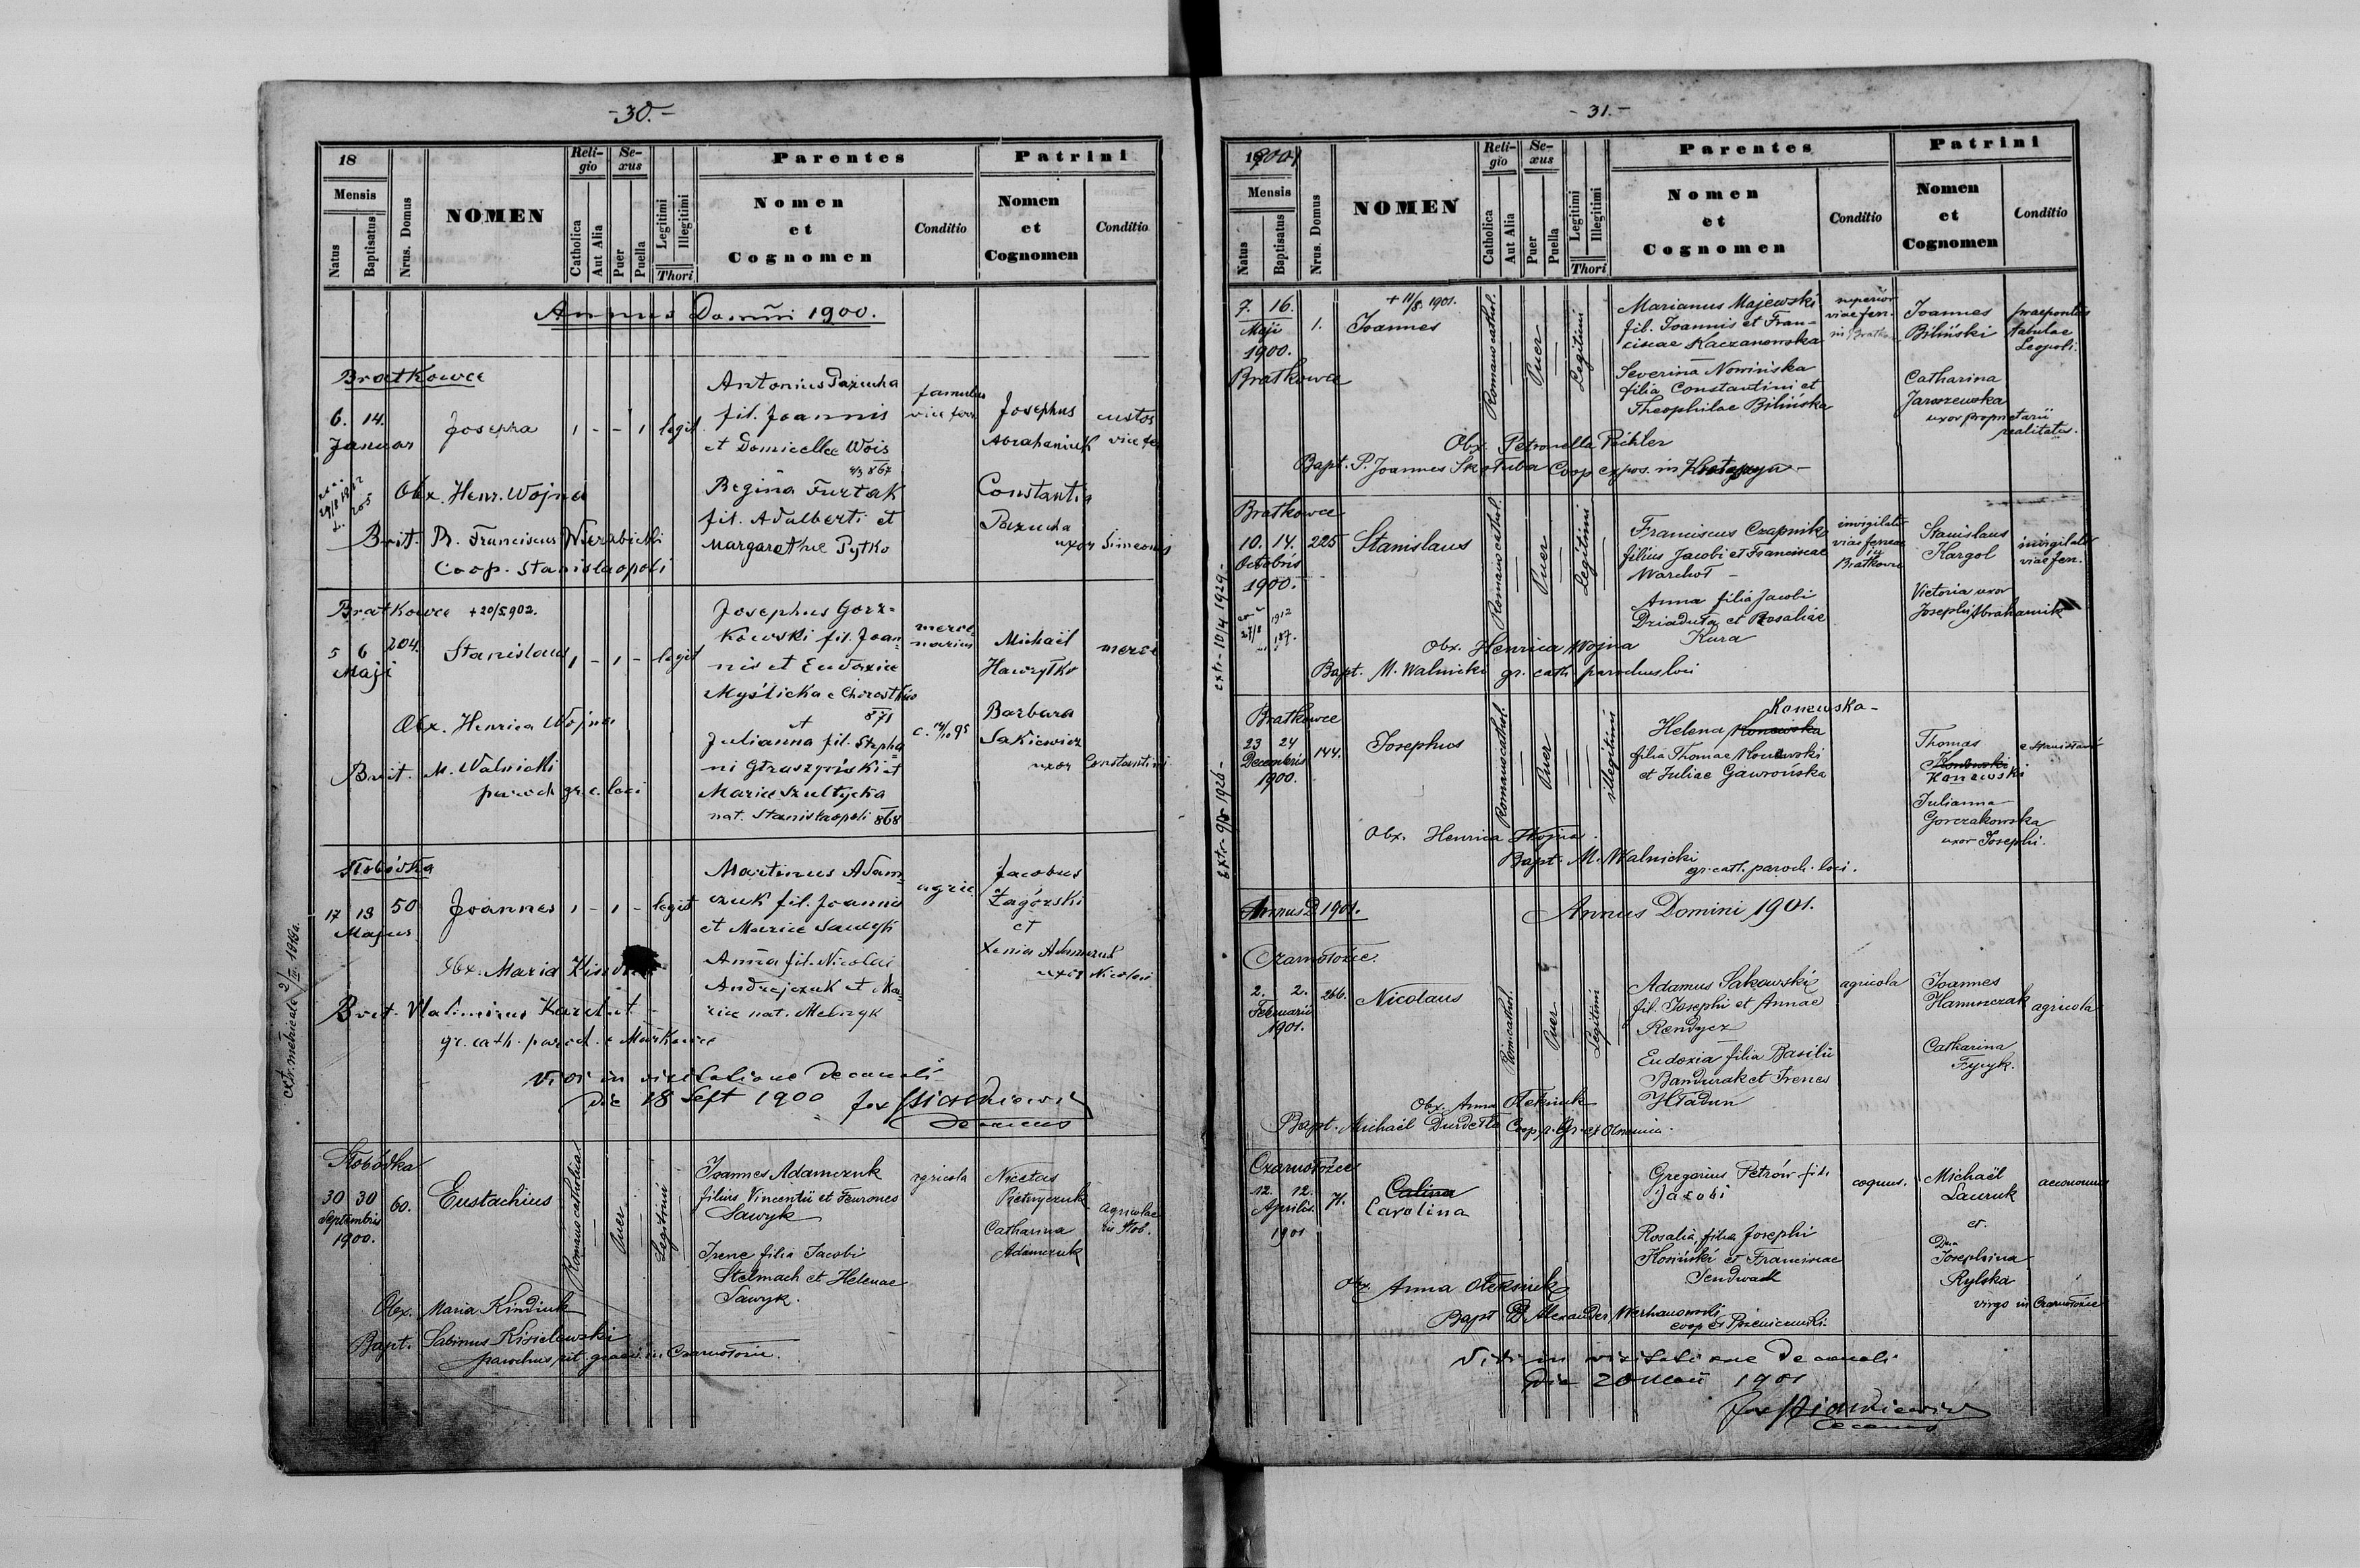 -30.-
18
Mensis
Natus
Baptisatus
Nrus. Domus
NOMEN
Religio
Catholica
Aut Alia
Sexus
Puer
Puella
Legitimi
Illegitimi
Thori
Parentes
Nomen
et
Cognomen
Conditio
Patrini
Nomen
et
Cognomen
Conditio
Annus Domini 1900.
Bratkowce
6. 14.
Januar
Josepha
1 - - 1 legit
Antonius Pazucha
fil. Joannis
et Domicellae Wois
867
Regina Furtak
fil. Adalberti et
Margarethae Pytko
famulus
viae ferr
Josephus
Abrahaniuk
Constantia
Pazucha
uxor Simeonis
custos
viae fer
Obx. Henr. Wojna
R. Franciscus Wierzbicki
Coop. Stanislaopoli
Bratkowce + 20/5 902.
5 6 204.
Maji
Stanislaus
1 - 1 - legit
Josephus Gorz-
kowski fil. Joan-
nis et Eudoxia
Myślicka e Chorostków
871
et
Julianna fil. Stepha
ni Straszyński et
Mariae Szultycka
nat. Stanislaopoli 868
merce-
narius
Michaël
Hawryłko
Barbara
Sakiewicz
uxor Constantini
Obx. Henrica Wojna
M. Walnicki
paroch gr. c. loci
Słobódka
17 18 50
Majus
Joannes
1 - 1 - legit
Martinus Adam-
czuk fil. Joannis
et Mariae Sawyk
Anna fil. Nicolai
Andrejczuk et Ma-
riae nat. Melnyk
agric
Jacobus
Zagórski
et
Xenia Adamczuk
uxor Nicolai
Obx. Maria
gr. cath. paroch.
extr. metricale 2/IV 1919 a.
Vidi in visitatione decanali
die 18 Sept 1900
Decanus
Słobódka
30 30 60.
Septembris
1900.
Eustachius
Romano catholica
Puer
Legitimi
Joannes Adamczuk
filius Vincentii et Feurones
Sawyk
Irene filia Jacobi
Stelmach et Helenae
Sawyk.
agricola
Nicetas
Pietryczuk
Catharina
Adamczuk
agricolae
in Słob.
Obx. Maria Kindiuk
Bapt. Sabinus Kisielewski
parochus rit. graeci in Czarnołoźce.
-31.-
1900/1
Mensis
Natus
Baptisatus
Nrus. Domus
NOMEN
Religio
Catholica
Aut Alia
Sexus
Puer
Puella
Legitimi
Illegitimi
Thori
Parentes
Nomen
et
Cognomen
Conditio
Patrini
Nomen
et
Cognomen
Conditio
7. 16. 1.
Maji
1900.
Bratkowce
+ 11/8 1901.
Joannes
Romano cathol.
Puer
Legitimi
Marianus Majewski
fil. Joannis et Fran-
ciscae Kaczanowska
Severina Nowińska
filia Constantini et
Theophilae Bilińska
superior
viae ferr.
in Bratkow
Joannes
Biliński
praepositus
tabulae
Leopoli.
Catharina
Jaroszewska
uxor proprietarii
realitatis.
Obx. Petronella Pichler
Bapt. P. Joannes Skotuba Coop expos. in
Bratkowce
10. 14. 225
Octobris
1900.
Stanislaus
Romano cathol.
Puer
Legitimi
Franciscus Czapnik
filius Jacobi et Franciscae
Warchoł -
Anna filia Jacobi
Dziaduta et Rosaliae
Kura
invigilator
viae ferreae
in
Bratkowce
Stanislaus
Kargol
invigilator
viae ferr.
Victoria uxor
Josephi Abrahamik
Obx. Henrica Wojna
Bapt. M. Walnicki gr. cath. parochus loci
extr. 10/4 1929-
Bratkowce
23 24 144.
Decembris
1900.
Josephus
Romano cathol.
Puer
illegitimi
Konewska-
Helena Konewska
filia Thomae Konewski
et Juliae Gawrońska
Thomas
Konewski
Julianna
Gorczakowska
uxor Josephi.
e Stanisławów
Obx. Henrica Wojna.
Bapt. M. Walnicki
gr. cath. paroch. loci.
Annus D. 1901.
Annus Domini 1901.
Czarnołoźce.
2. 2. 266.
Februarii
1901.
Nicolaus
Rom cathol.
Puer
Legitimi
Adamus Sakowski
fil. Josephi et Annae
Rendycz
Eudoxia filia Basilii
Bandurak et Irenes
Hładun
agricola
Joannes
Hamurczak
agricola
Catharina
Fyzyk.
Obx. Anna Oleksiuk
Bapt. Michaël Durdełło Coop.
Czarnołoźce
12. 12. 71.
Aprilis
1901
Calina
Carolina
Gregorius Petrów fil.
Jacobi
Rosalia, filia Josephi
Kosiński et Franciscae
Sendwach
coquus.
Michaël
Lauruk
et.
Dna
Josephina
Rylska
virgo in Czarnołoźce
aeconomus
Obx. Anna Oleksiuk
Bapt. Alexander Werhanowski
coop.
Vidi in visitatione Decanali
die 20 Maii 1901
Decanus